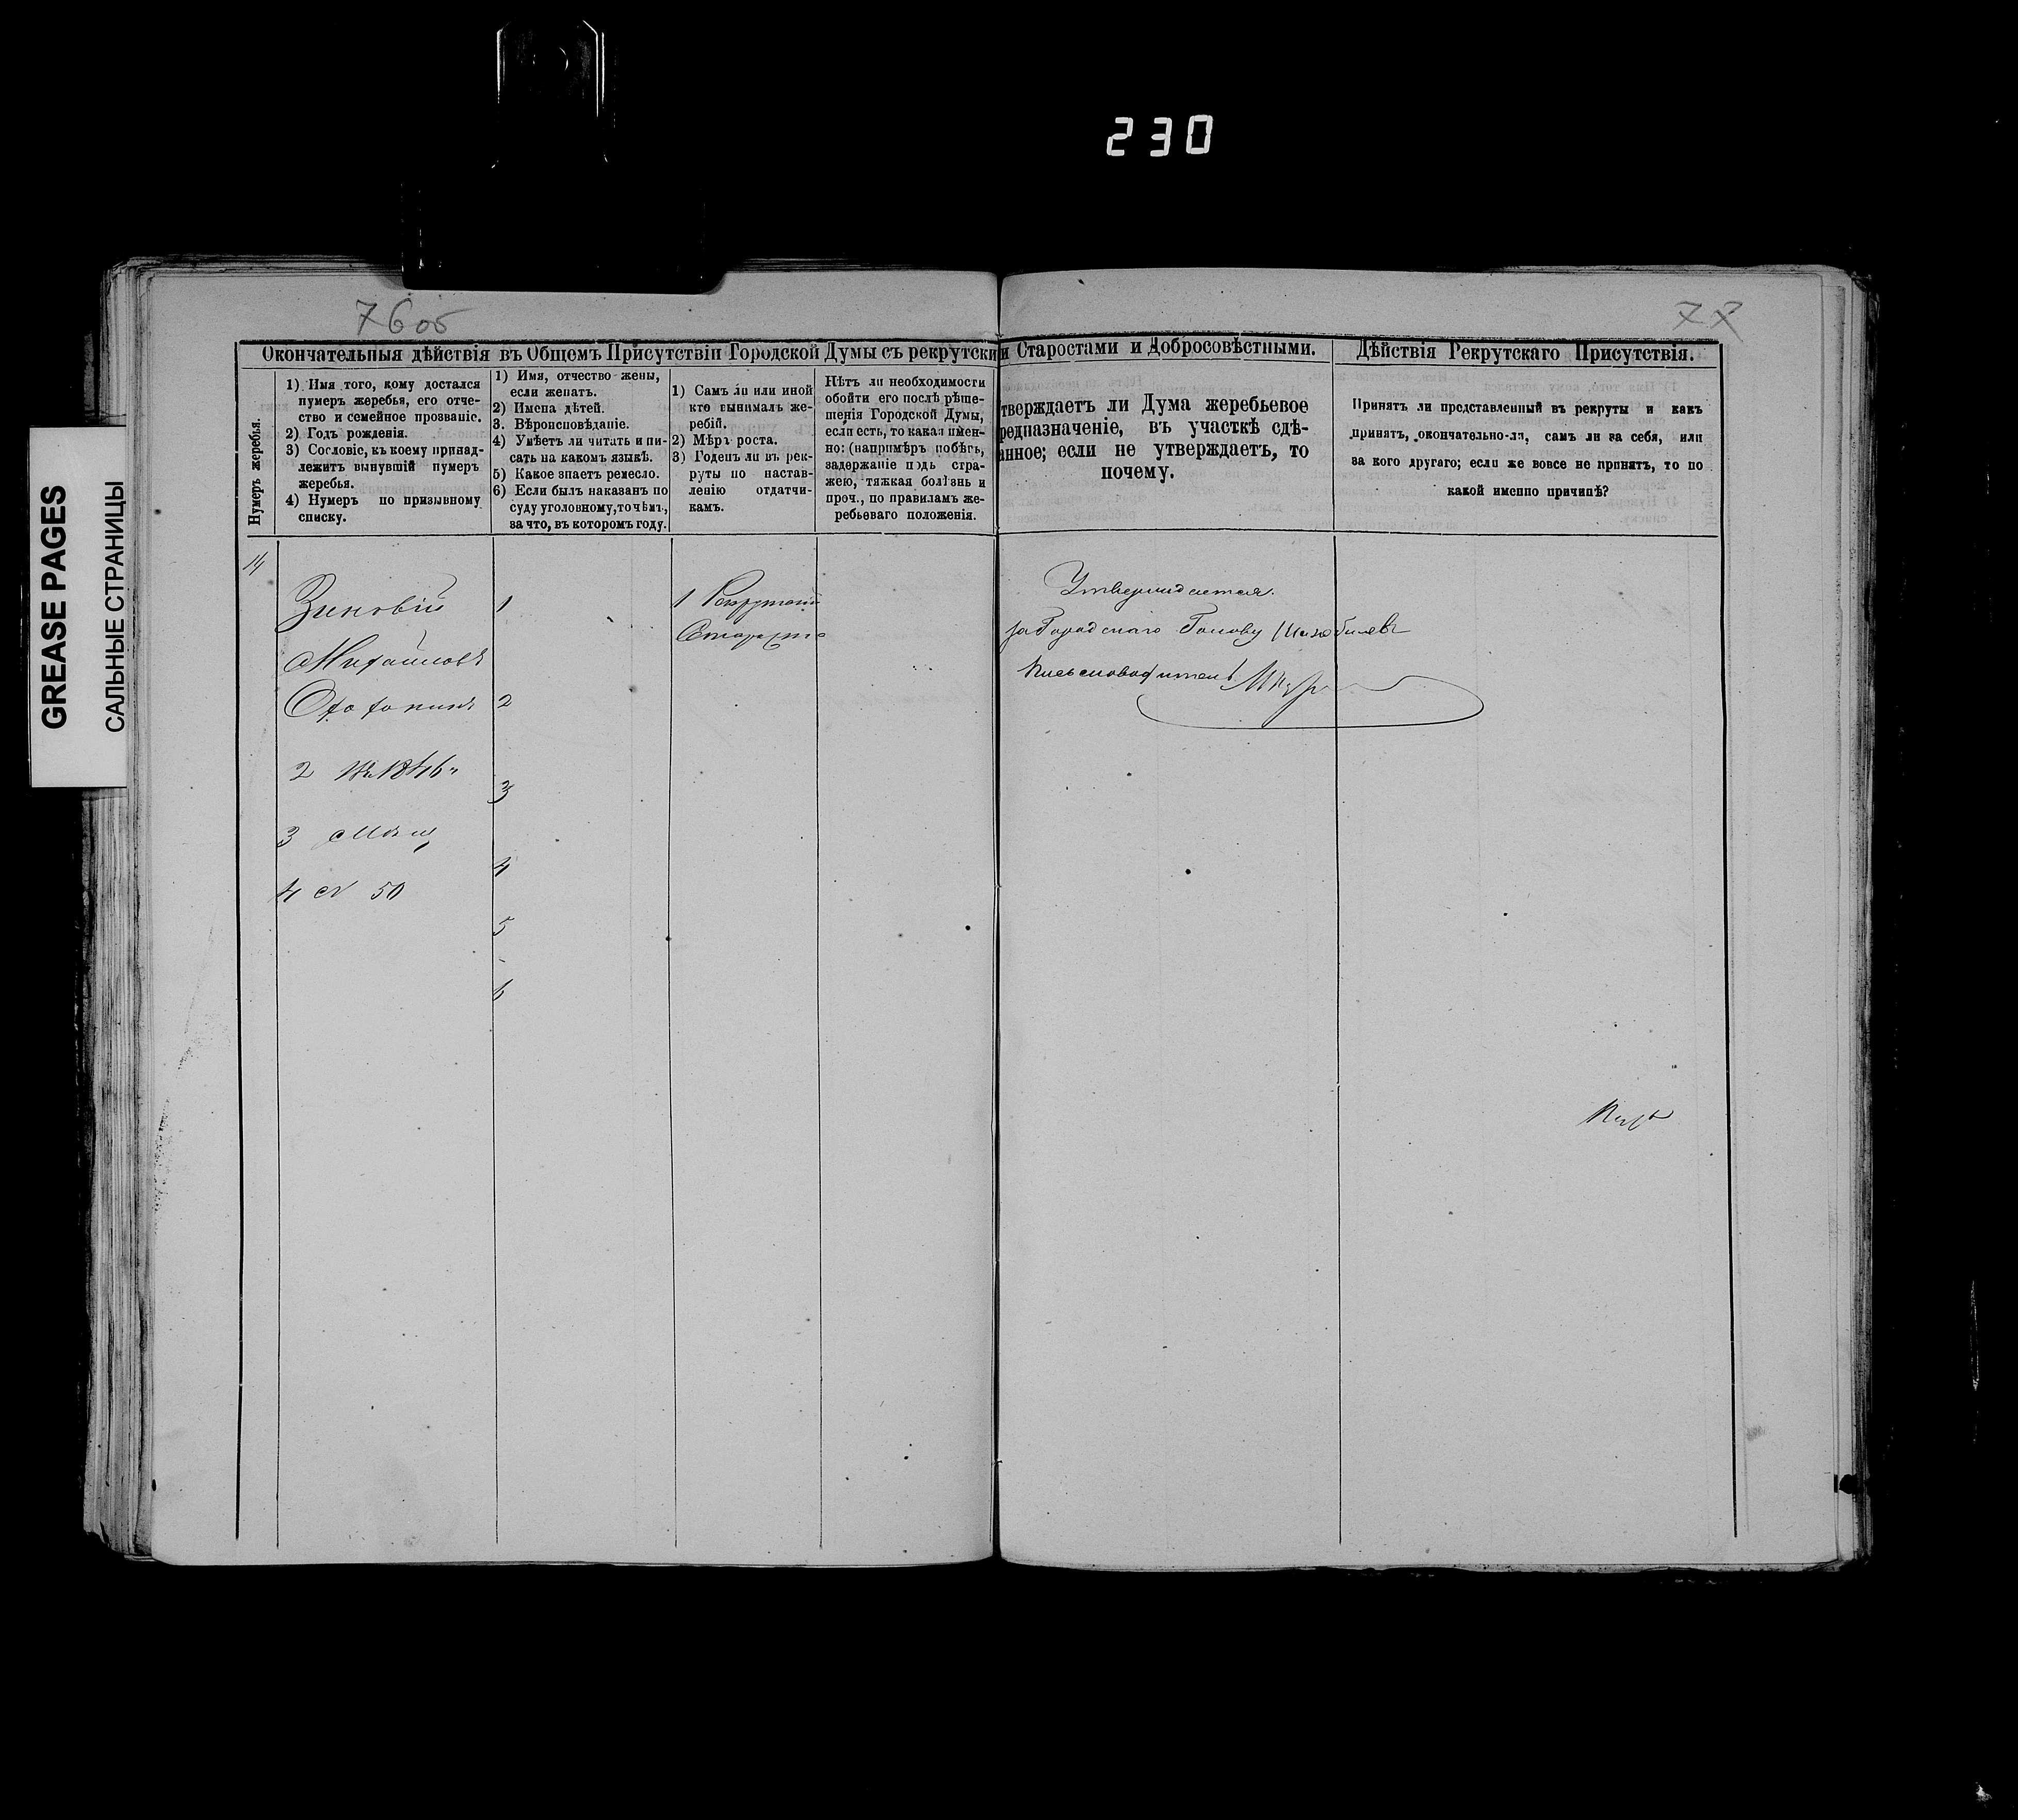 230
GREASE PAGES
САЛЬНЫЕ СТРАНИЦЫ
76 об
77
Окончательныя дѣйствія въ Общемъ Присутствіи Городской Думы съ рекрутски
и Старостами и Добросовѣстными.
Дѣйствія Рекрутскаго Присутствія.
Нумеръ жеребья.
1) Имя того, кому достался
нумеръ жеребья, его отче-
ство и семейное прозваніе.
2) Годъ рожденія.
3) Сословіе, къ коему принад-
лежитъ вынувшій нумеръ
жеребья.
4) Нумеръ по призывному
списку.
1) Имя, отчество жены,
если женатъ.
2) Имена дѣтей.
3. Вѣроисповѣданіе.
4) Умѣетъ ли читать и пи-
сать на какомъ языкѣ.
5) Какое знаетъ ремесло.
6) Если былъ наказанъ по
суду уголовному, то чѣмъ,
за что, въ которомъ году.
1) Самъ ли или иной
кто вынималъ же-
ребій.
2) Мѣръ роста.
3) Годенъ ли въ рек-
руты по настав-
ленію отдатчи-
камъ.
Нѣтъ ли необходимости
обойти его послѣ рѣше-
шенія Городской Думы,
если есть, то какая имен-
но: (напримѣръ побѣгъ,
задержаніе подъ стра-
жею, тяжкая болѣзнь и
проч., по правиламъ же-
ребьеваго положенія.
тверждаетъ ли Дума жеребьевое
редназначеніе, въ участкѣ сдѣ-
анное; если не утверждаетъ, то
почему.
Принятъ ли представленный въ рекруты и какъ
принятъ, окончательно-ли, самъ ли за себя, или
за кого другаго; если же вовсе не принятъ, то по
какой именно причинѣ?
14
Зиновій
Михайловъ
2 1846
3 Мѣщ
4 N 50
1
2
3
4
5
6
1 Рекрутскій
Староста
Утверждается.
за Городскаго Голову
Письмоводитель